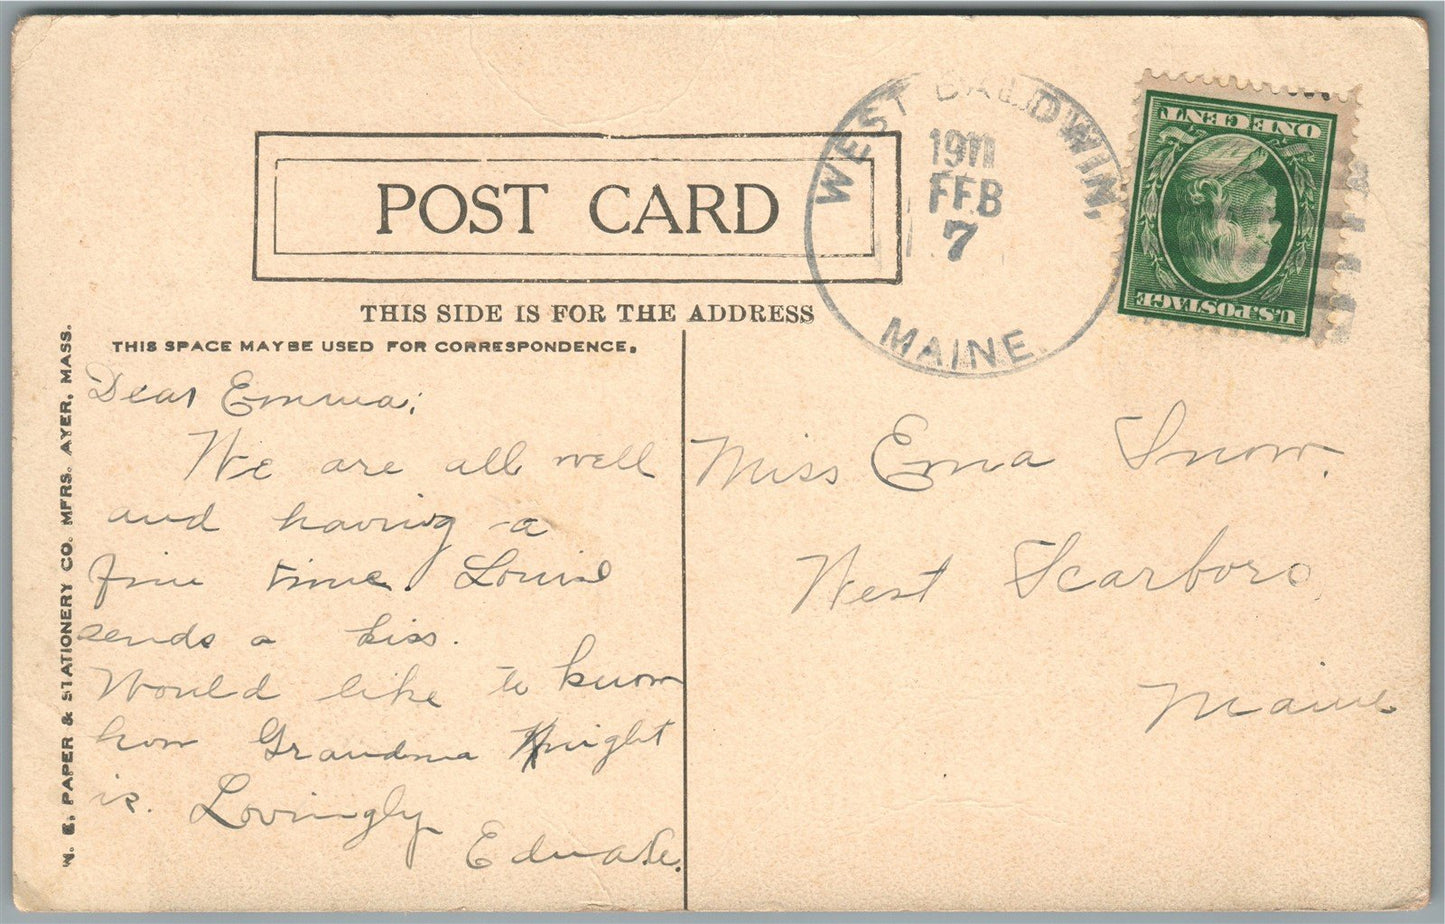 POST CARD
THIS SIDE IS FOR THE ADDRESS
THIS SPACE MAY BE USED FOR CORRESPONDENCE.
N. E. PAPER & STATIONERY CO. MFRS. AYER, MASS.
WEST BALDWIN,
1911
FEB
7
MAINE.
ONE CENT
U.S. POSTAGE
Dear Emma;
We are all well
and having a
fine time. Louise
sends a kiss.
Would like to know
how Grandma Knight
is. Lovingly
Miss Ema Snow.
West Scarboro
Maine